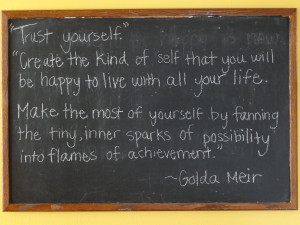 "Trust yourself."
"Create the kind of self that you will
be happy to live with all your life.
Make the most of yourself by fanning
the tiny, inner sparks of possibility
into flames of achievement."
~Golda Meir